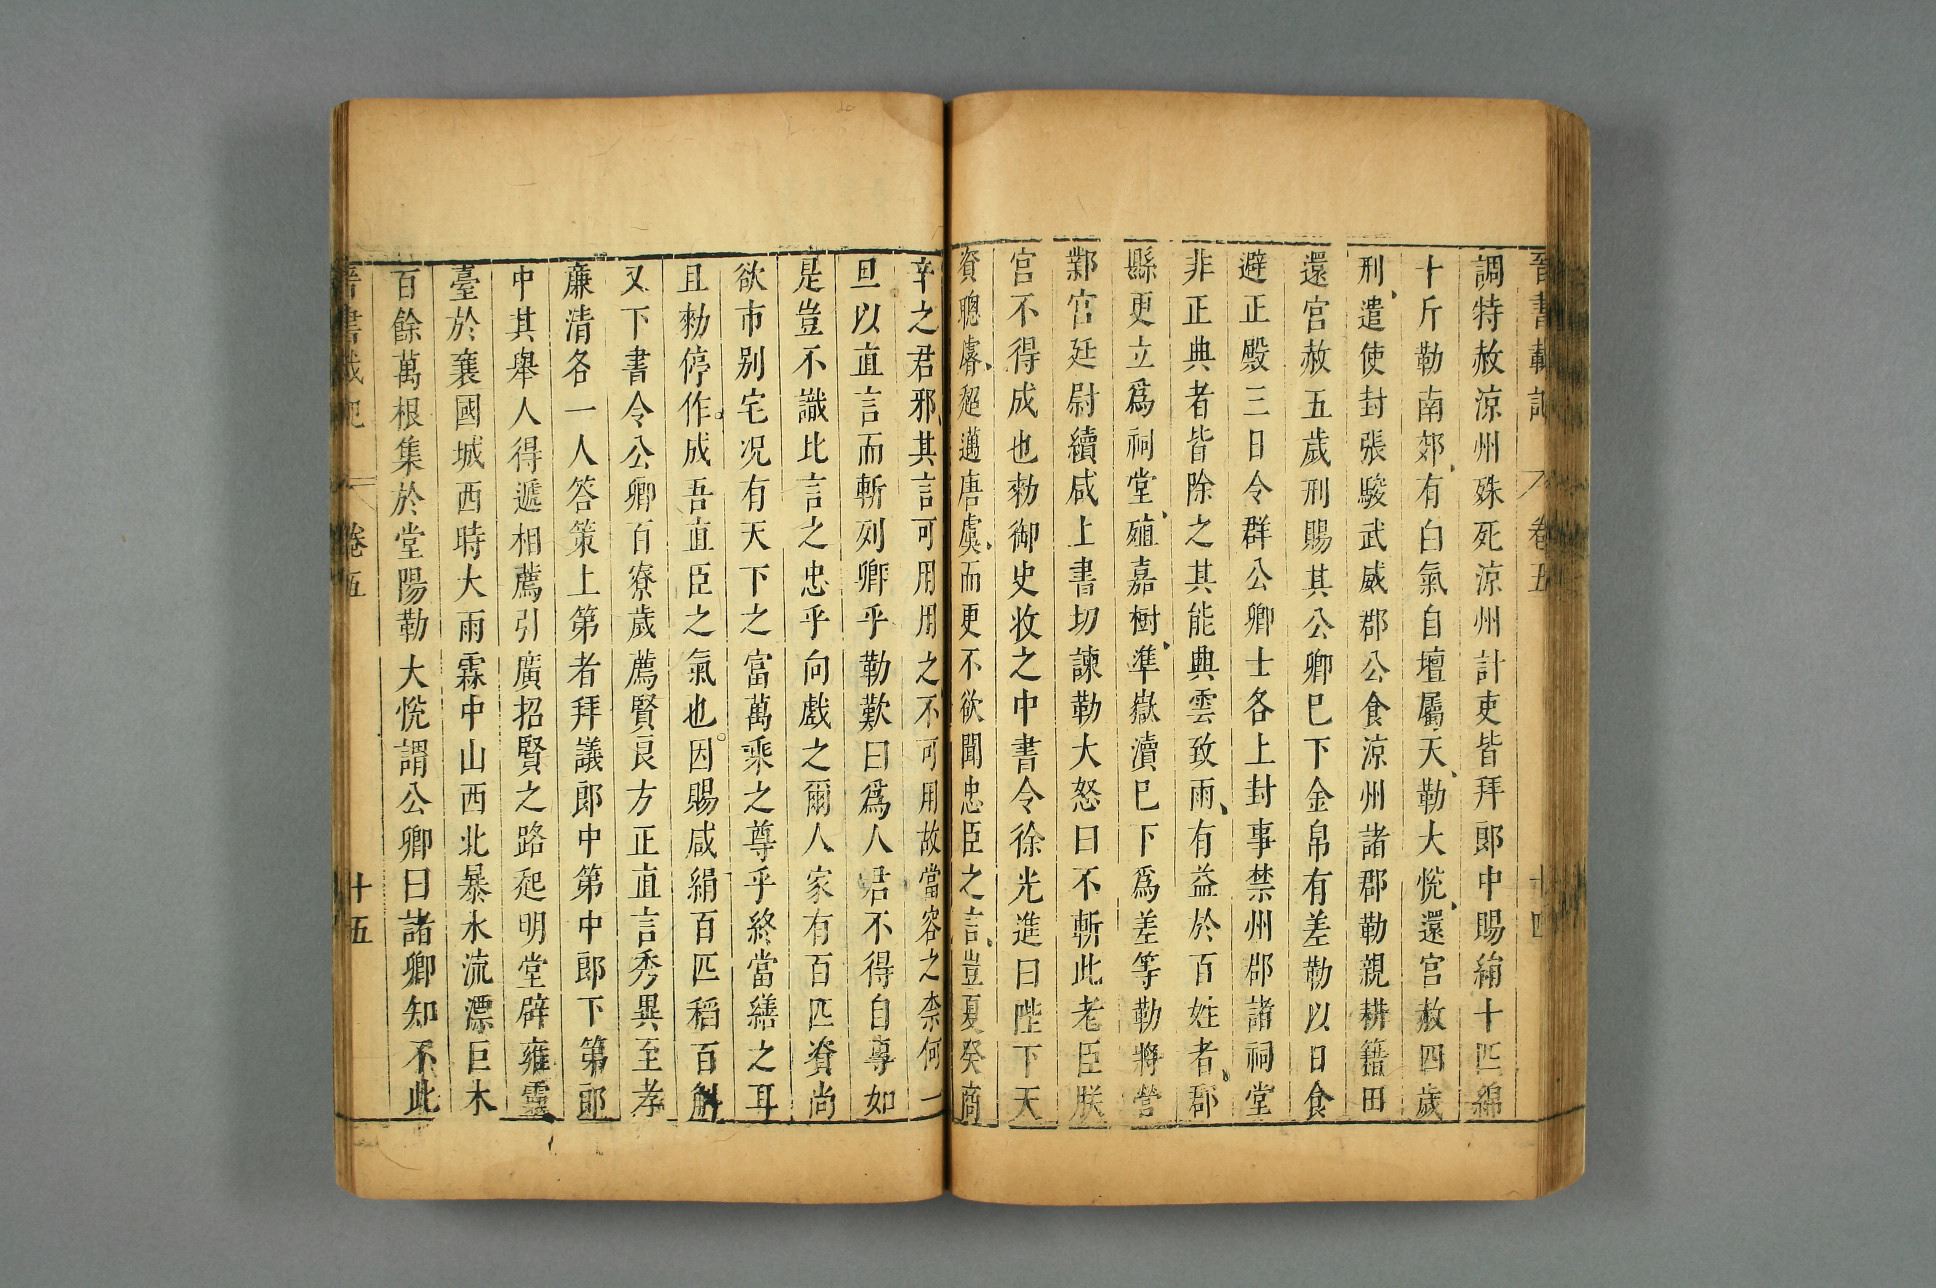 晉書載記 卷五 十四
調特赦涼州殊死涼州計吏皆拜郎中賜絹十匹綿
十斤勒南郊有白氣自壇屬天勒大悅還宮赦四歲
刑遣使封張駿武威郡公食涼州諸郡勒親耕籍田
還宮赦五歲刑賜其公卿巳下金帛有差勒以日食
避正殿三日令群公卿士各上封事禁州郡諸祠堂
非正典者皆除之其能興雲致雨有益於百姓者郡
縣更立爲祠堂殖嘉樹準嶽瀆巳下爲差等勒將營
鄴宮廷尉續咸上書切諫勒大怒曰不斬此老臣朕
宮不得成也勑御史收之中書令徐光進曰陛下天
資聰睿超邁唐虞而更不欲聞忠臣之言豈夏癸商
辛之君邪其言可用用之不可用故當容之柰何一
旦以直言而斬列卿乎勒歎曰爲人君不得自專如
是豈不識此言之忠乎向戲之爾人家有百匹資尚
欲市别宅况有天下之富萬乘之尊乎終當繕之耳
且勑停作成吾直臣之氣也因賜咸絹百匹稻百斛
又下書令公卿百寮歲薦賢良方正直言秀異至孝
廉清各一人答策上第者拜議郎中第中郎下第郎
中其舉人得遞相薦引廣招賢之路起明堂辟雍靈
臺於襄國城西時大雨霖中山西北暴水流漂巨木
百餘萬根集於堂陽勒大悅謂公卿曰諸卿知不此
晉書載記 卷五 十五